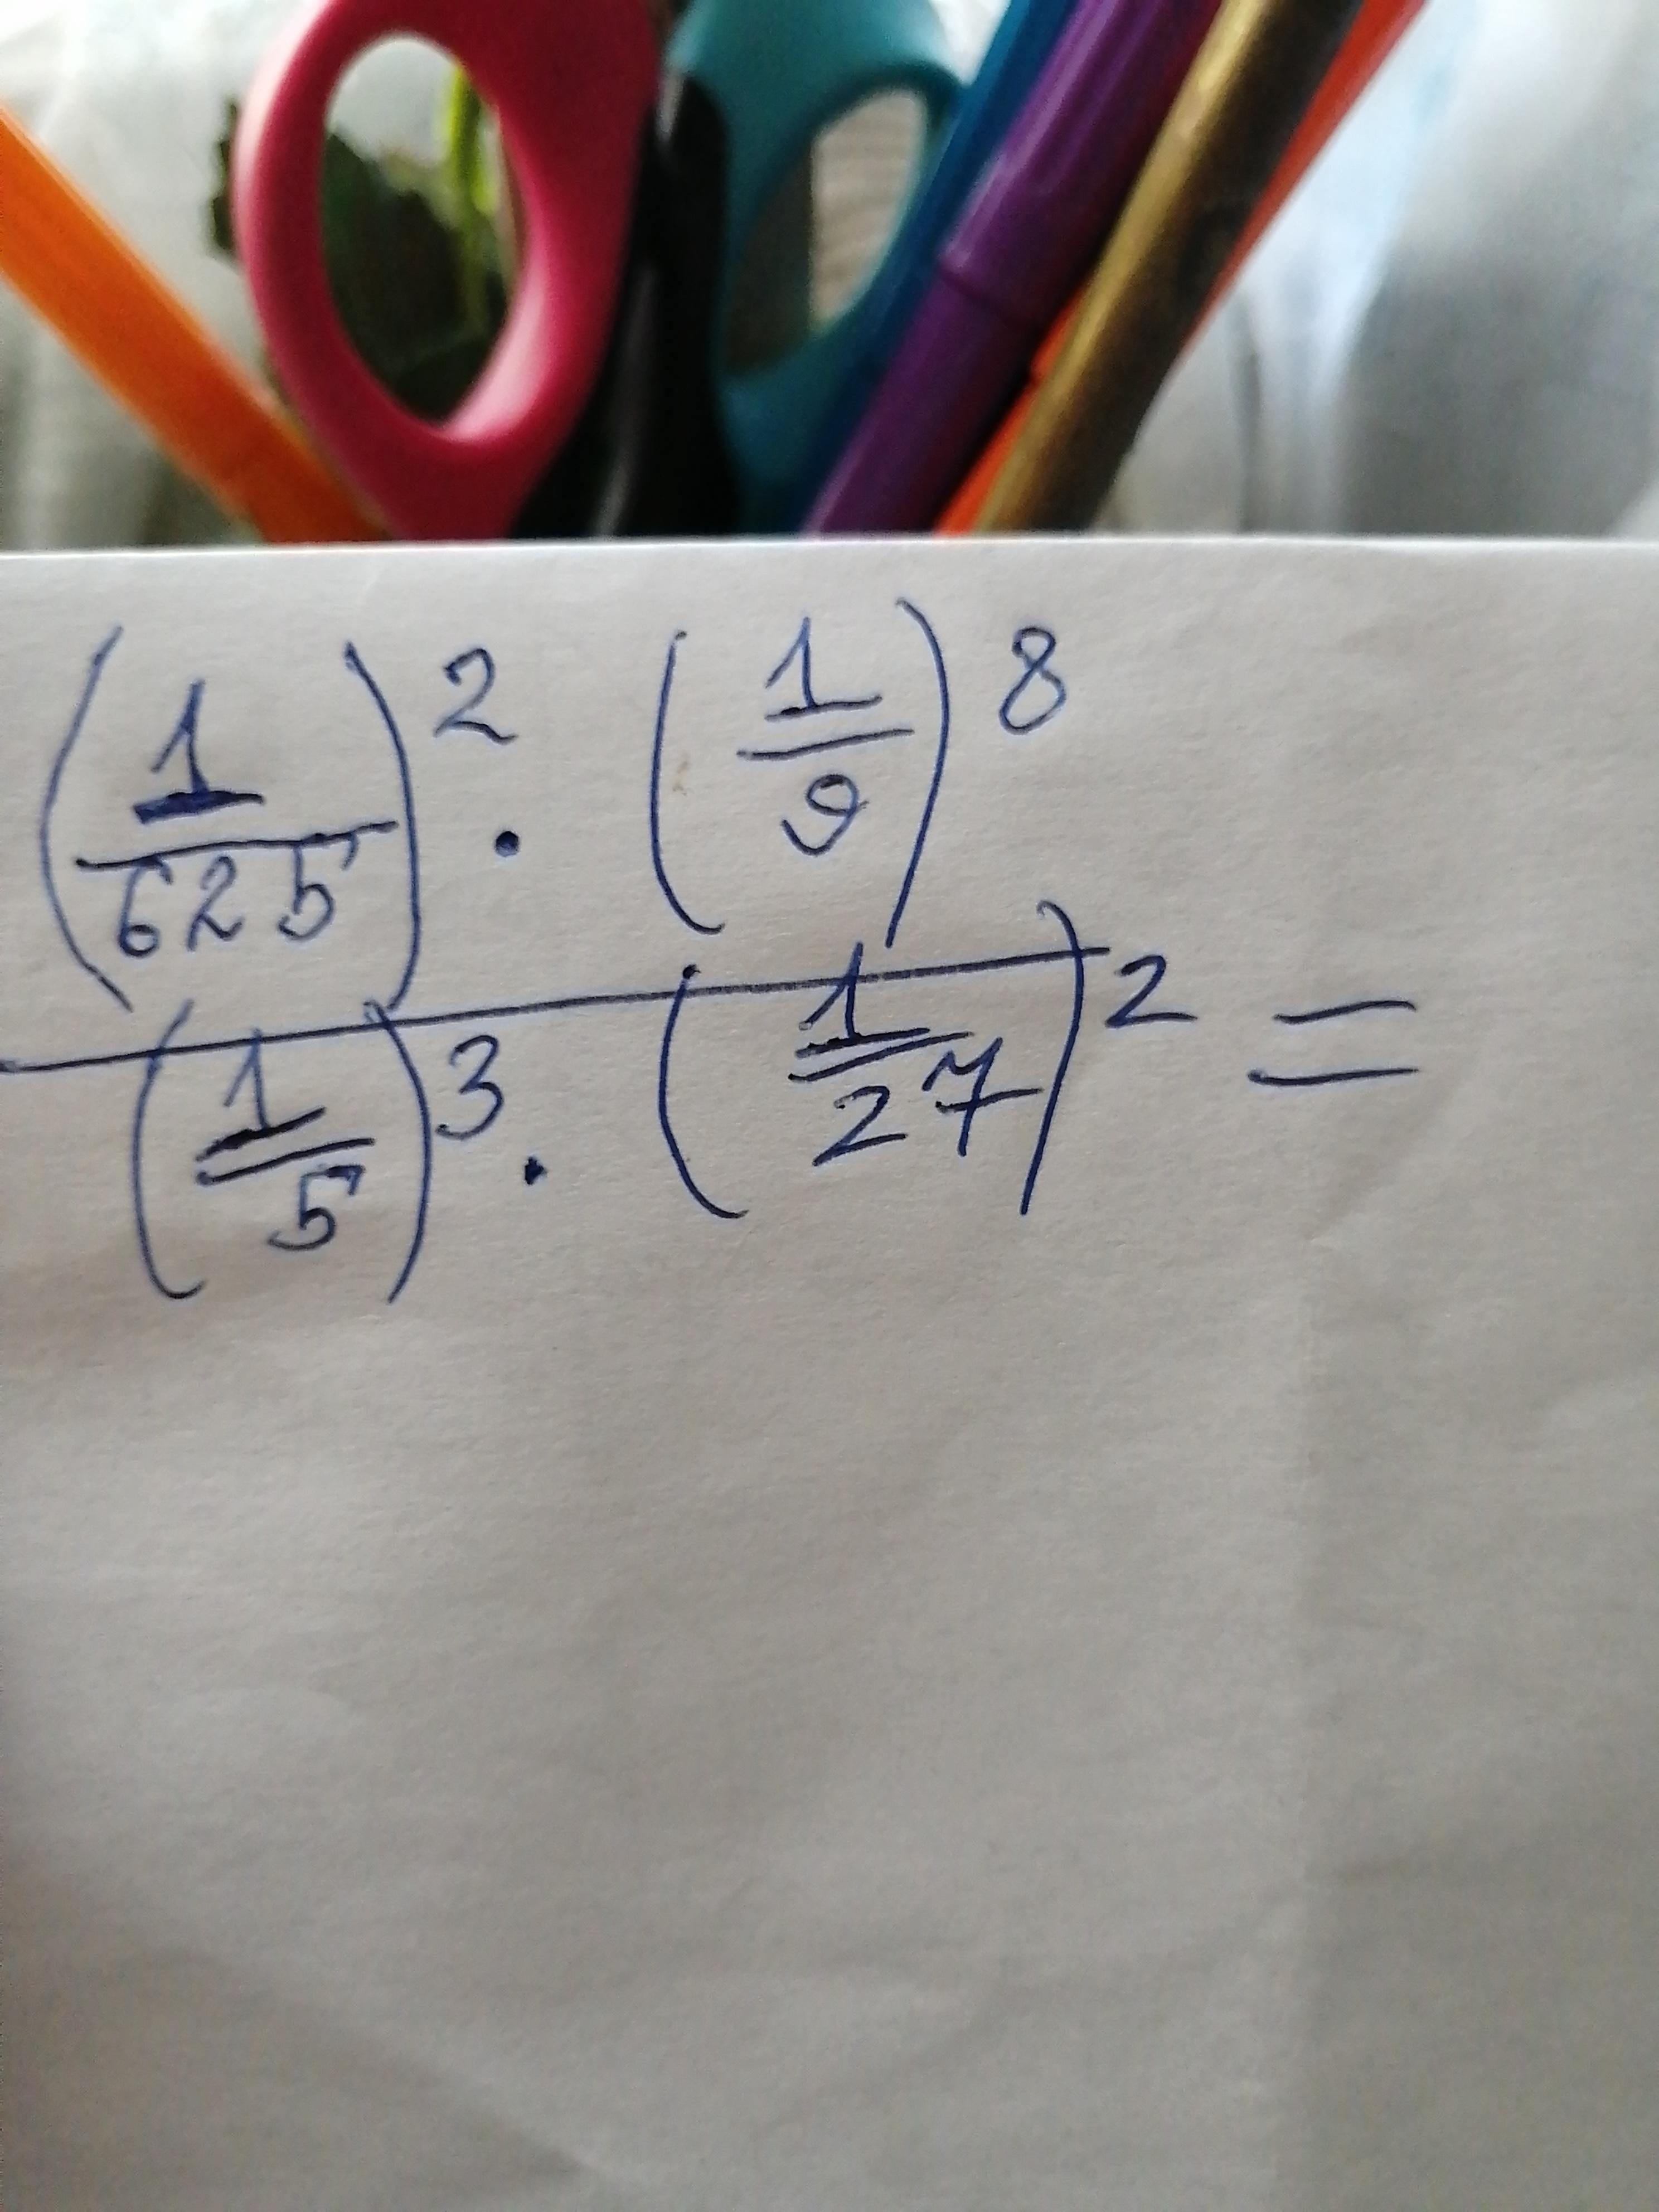 (1/625)² · (1/9)⁸
(1/5)³ · (1/27)² =